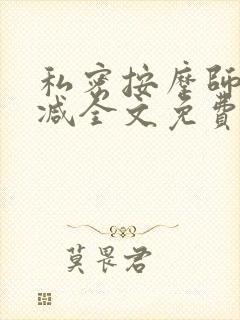 私密按摩師
减全文免費
莫畏君